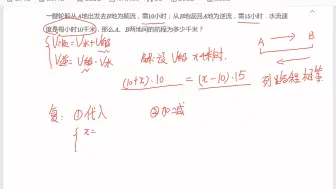 一艘轮船从A地出发去B地为顺流，需10小时；从B地返回A地为逆流，需15小时．水流速
度是每小时10千米，那么A、B两地间的航程为多少千米？
V顺=V水+V船
V逆=V船-V水
解：设V船 x千米/时．
A → B
(10+x)·10 = (x-10)·15
列出方程 相等
复：①代入 ②加减
{ x=